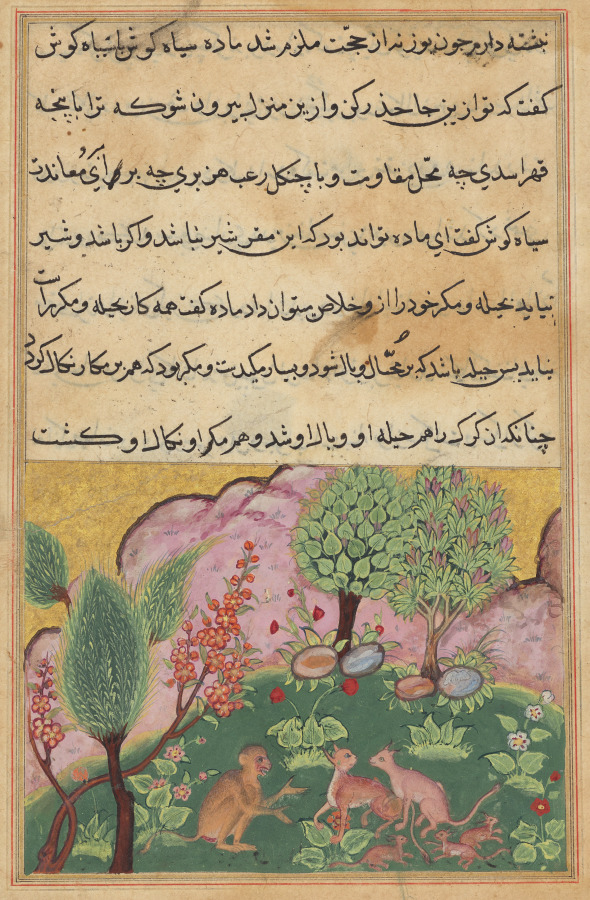 نبشته دارم چون بوزنه از حجّت ملزم شد ماده سیاه گوش با سیاه گوش
گفت که تو ازین جا حذر کن و ازین منزل بیرون شو که ترا با پنجه
قهر اسدی چه محّل مقاومت و با چنکل رعب هزبری چه برگ معاندت
سیاه گوش گفت ای ماده تواند بود که این مقر شیر نباشد و اگر باشد و شیر
بیاید بحیله و مکر خود را ازو خلاص میتوان داد ماده گفت همه کار بحیله و مکر راست
نیاید بس حیله باشد که بر محتال وبال شود و بسیار مکیدت و مکر بود که هم بر مکار نکال گردد
چنانکه آن گرگ را هم حیله او وبال او شد و هم مکر او نکال او گشت